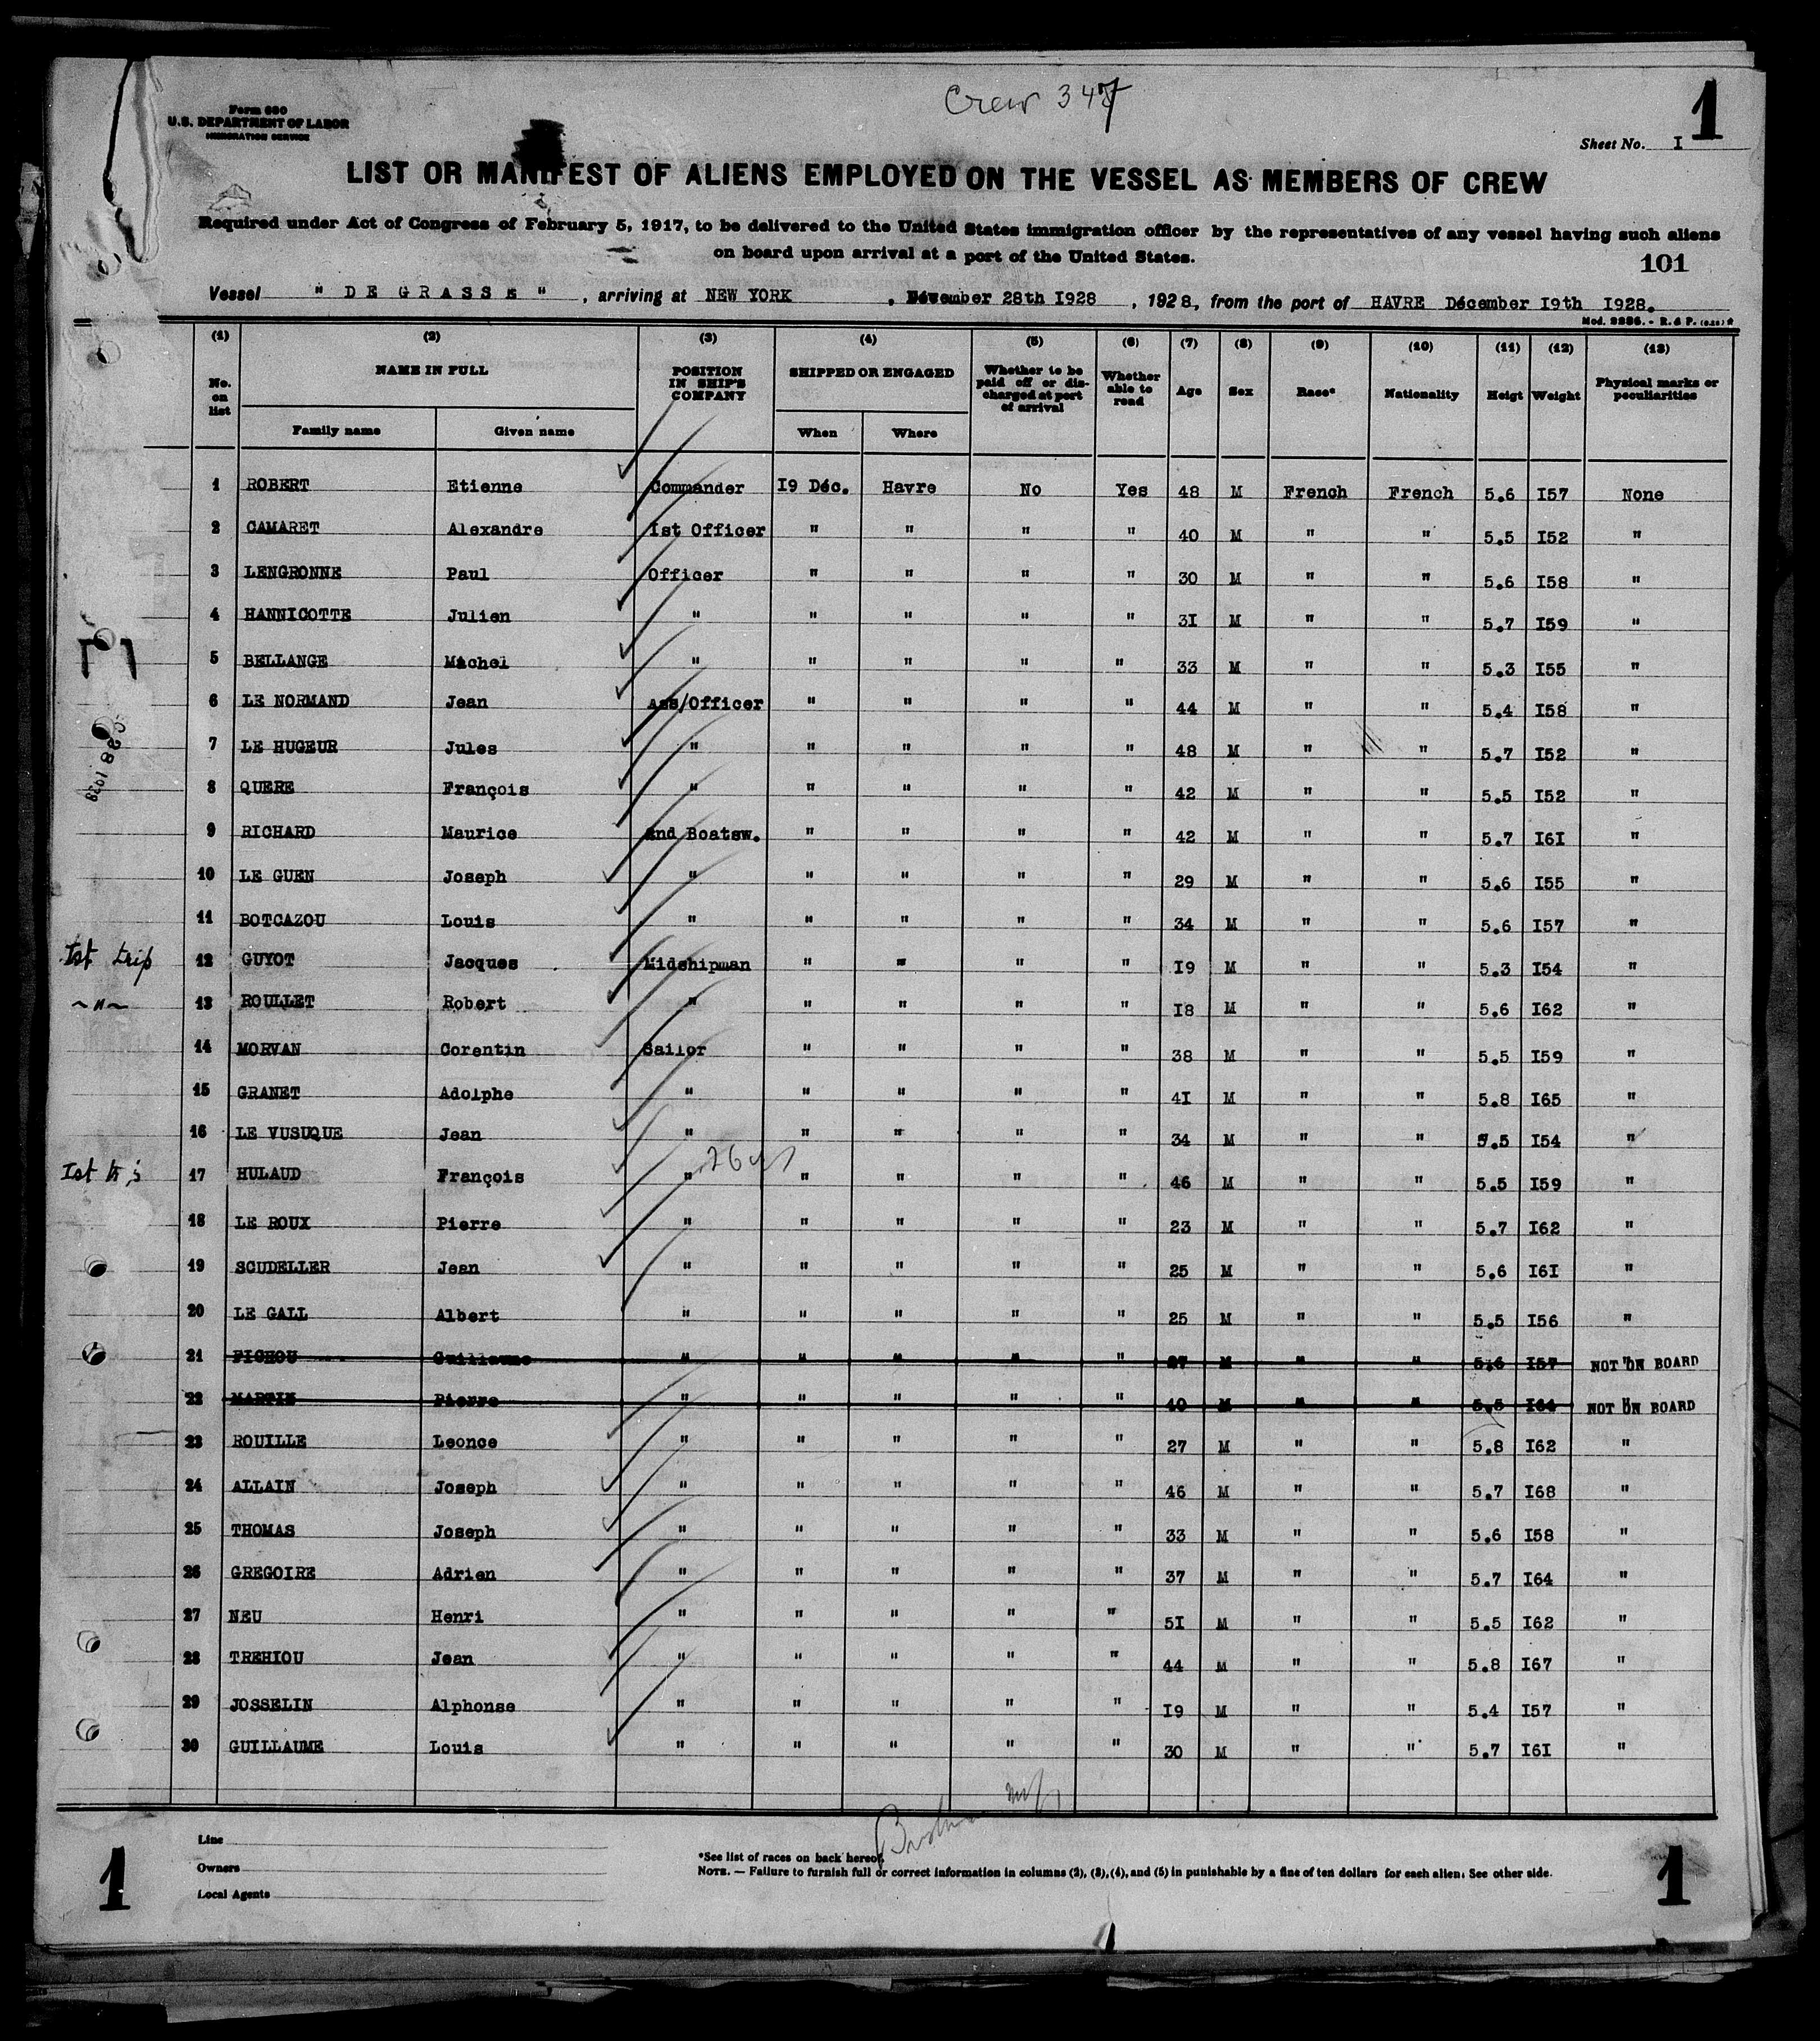 Crew 347
1
Form 680
U.S. DEPARTMENT OF LABOR
IMMIGRATION SERVICE
Sheet No. I
LIST OR MANIFEST OF ALIENS EMPLOYED ON THE VESSEL AS MEMBERS OF CREW
Required under Act of Congress of February 5, 1917, to be delivered to the United States immigration officer by the representatives of any vessel having such aliens
on board upon arrival at a port of the United States.
101
Vessel " DE GRASSE " , arriving at NEW YORK , December 28th I928 , 1928, from the port of HAVRE Décember I9th I928.
Mod. 2286. - R. & P. (6.28) *
(1) (2) (3) (4) (5) (6) (7) (8) (9) (10) (11) (12) (13)
No. on list NAME IN FULL POSITION IN SHIP'S COMPANY SHIPPED OR ENGAGED Whether to be paid off or discharged at port of arrival Whether able to read Age Sex Race* Nationality Heigt Weight Physical marks or peculiarities
Family name Given name When Where
1 ROBERT Etienne Commander I9 Déc. Havre No Yes 48 M French French 5.6 I57 None
2 CAMARET Alexandre Ist Officer " " " " 40 M " " 5.5 I52 "
3 LENGRONNE Paul Officer " " " " 30 M " " 5.6 I58 "
4 HANNICOTTE Julien " " " " " 3I M " " 5.7 I59 "
5 BELLANGE Michel " " " " " 33 M " " 5.3 I55 "
6 LE NORMAND Jean Ass/Officer " " " " 44 M " " 5.4 I58 "
7 LE HUGEUR Jules " " " " " 48 M " " 5.7 I52 "
8 QUERE François " " " " " 42 M " " 5.5 I52 "
9 RICHARD Maurice 2nd Boatsw. " " " " 42 M " " 5.7 I6I "
10 LE GUEN Joseph " " " " " 29 M " " 5.6 I55 "
11 BOTCAZOU Louis " " " " " 34 M " " 5.6 I57 "
Ist trip 12 GUYOT Jacques Midshipman " " " " I9 M " " 5.3 I54 "
~"~ 13 ROULLET Robert " " " " " I8 M " " 5.6 I62 "
14 MORVAN Corentin Sailor " " " " 38 M " " 5.5 I59 "
15 GRANET Adolphe " " " " " 4I M " " 5.8 I65 "
16 LE VUSUQUE Jean " " " " " 34 M " " 5.5 I54 "
Ist 17 HULAUD François " " " " " 46 M " " 5.5 I59 "
18 LE ROUX Pierre " " " " " 23 M " " 5.7 I62 "
19 SCUDELLER Jean " " " " " 25 M " " 5.6 I6I "
20 LE GALL Albert " " " " " 25 M " " 5.5 I56 "
21 PICHOU Guillaume " " " " " 27 M " " 5.6 I57 " NOT ON BOARD
22 MARTIN Pierre " " " " " 40 M " " 5.5 I64 " NOT ON BOARD
23 ROUILLE Leonce " " " " " 27 M " " 5.8 I62 "
24 ALLAIN Joseph " " " " " 46 M " " 5.7 I68 "
25 THOMAS Joseph " " " " " 33 M " " 5.6 I58 "
26 GREGOIRE Adrien " " " " " 37 M " " 5.7 I64 "
27 NEU Henri " " " " " 5I M " " 5.5 I62 "
28 TREHIOU Jean " " " " " 44 M " " 5.8 I67 "
29 JOSSELIN Alphonse " " " " " I9 M " " 5.4 I57 "
30 GUILLAUME Louis " " " " " 30 M " " 5.7 I6I "
Line
Owners
Local Agents
*See list of races on back hereof.
NOTE. — Failure to furnish full or correct information in columns (2), (3), (4), and (5) in punishable by a fine of ten dollars for each alien. See other side.
1
1